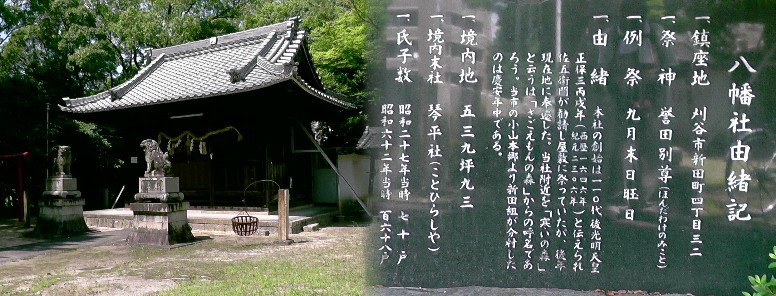 八幡社由緒記
一、鎮座地 刈谷市新田町四丁目三二
一、祭神 誉田別尊(ほんだわけのみこと)
一、例祭 九月末日旺日
一、由緒 本社の創始は一一〇代後光明天皇
正保三丙戌年(西暦一六四六年
紀元二三〇六年)と伝えられ
佐五衛門が勧請し屋敷に祭っていたが、後年
現在地に奉遷した。当社附近を「寒いの森」
と云うは「さごえもんの森」からの呼名であ
ろう。当市の小山本郷より新田組が分村した
のは慶安年中である。
一、境内地 五三九坪九三
一、境内末社 琴平社(ことひらしや)
一、氏子数 昭和二十七年当時 七十戸
昭和六十二年当時 百六十八戸